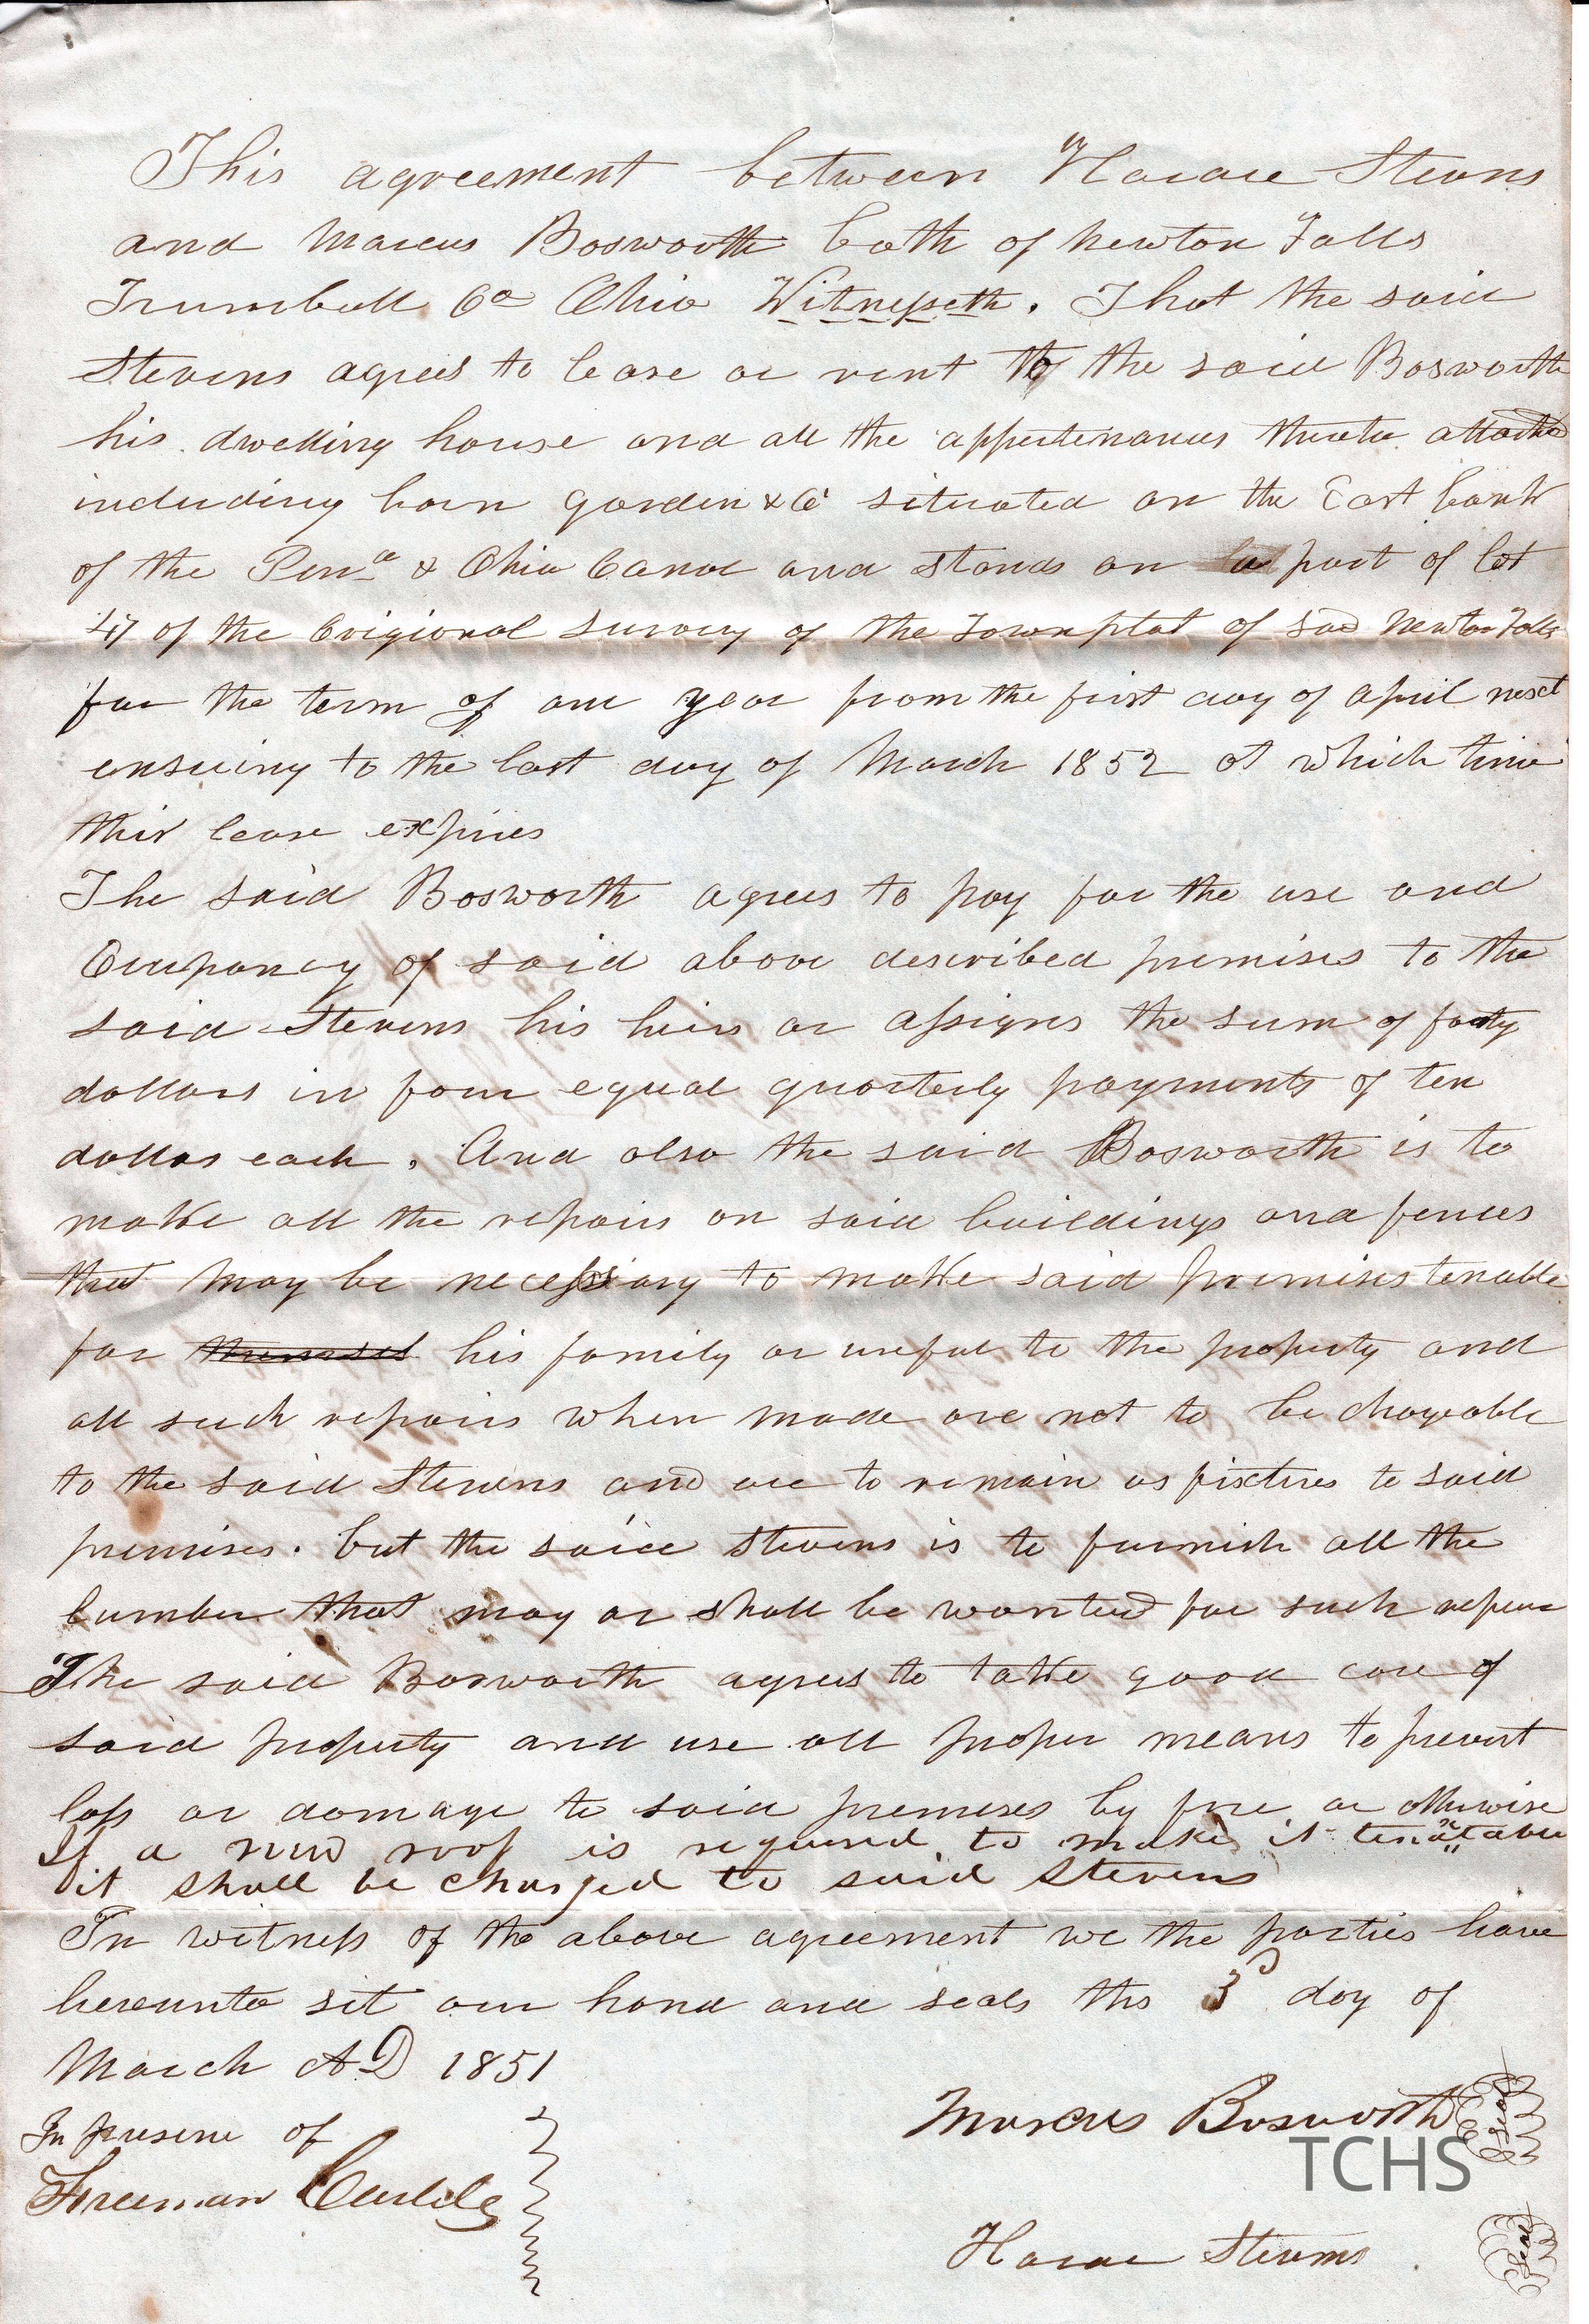 This agreement between Horace Stevens
and Marcus Bosworth both of Newton Falls
Trumbull Co Ohio Witnesseth. That the said
Stevens agrees to lease or rent to the said Bosworth
his dwelling house and all the appertenances thereto attached
including barn garden &c situated on the East bank
of the Penna & Ohio Canal and stands on a part of lot
47 of the Origional survey of the Townplat of said Newton Falls
for the term of one year from the first day of April next
ensuing to the last day of March 1852 at which time
this lease expires
The said Bosworth agrees to pay for the use and
Occupancy of said above described premises to the
said Stevens his heirs or assigns the sum of forty
dollars in four equal quarterly payments of ten
dollars each. And also the said Bosworth is to
make all the repairs on said buildings and fences
that may be necessary to make said premises tenable
for his family or useful to the property and
all such repairs when made are not to be chargeable
to the said Stevens and are to remain as fixtures to said
premises. but the said Stevens is to furnish all the
lumber that may or shall be wanted for such repairs
The said Bosworth agrees to take good care of
said property and use all proper means to prevent
loss or damage to said premises by fire or otherwise
If a new roof is required to make it tenatable
it shall be charged to said Stevens
In witness of the above agreement we the parties have
hereunto set our hand and seals this 3d day of
March AD 1851
In presence of
Freeman
Marcus Bosworth Seal
TCHS
Horace Stevens Seal